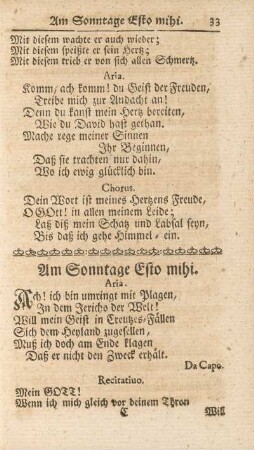 Am Sonntage Esto mihi. 33
Mit diesem wachte er auch wieder;
Mit diesem speißte er sein Hertz;
Mit diesem trieb er von sich allen Schmertz.
Aria.
Komm, ach komm! du Geist der Freuden,
Treibe mich zur Andacht an!
Denn du kanst mein Hertz bereiten,
Wie du David hast gethan.
Mache rege meiner Sinnen
Ihr Beginnen,
Daß sie trachten nur dahin,
Wo ich ewig glücklich bin.
Chorus.
Dein Wort ist meines Hertzens Freude,
O GOtt! in allen meinem Leide;
Laß diß mein Schatz und Labsal seyn,
Bis daß ich gehe Himmel-ein.
Am Sonntage Esto mihi.
Aria.
Ach! ich bin umringt mit Plagen,
In dem Jericho der Welt!
Will mein Geist in Creutzes-Fällen
Sich dem Heyland zugesellen,
Muß ich doch am Ende klagen
Daß er nicht den Zweck erhält.
Da Capo.
Recitativo.
Mein GOTT!
Wenn ich mich gleich vor deinem Thron
C Will